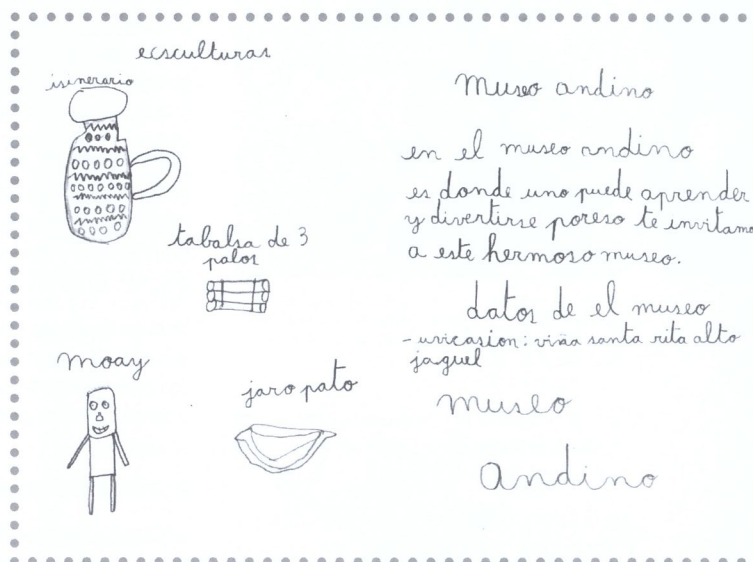 ecsculturas
isinerario
tabalsa de 3
palos
moay
jaro pato
museo andino
en el museo andino
es donde uno puede aprender
y divertirse poreso te invitamo
a este hermoso museo.
datos de el museo
- uvicasion: viña santa rita alto
jaguel
museo
andino